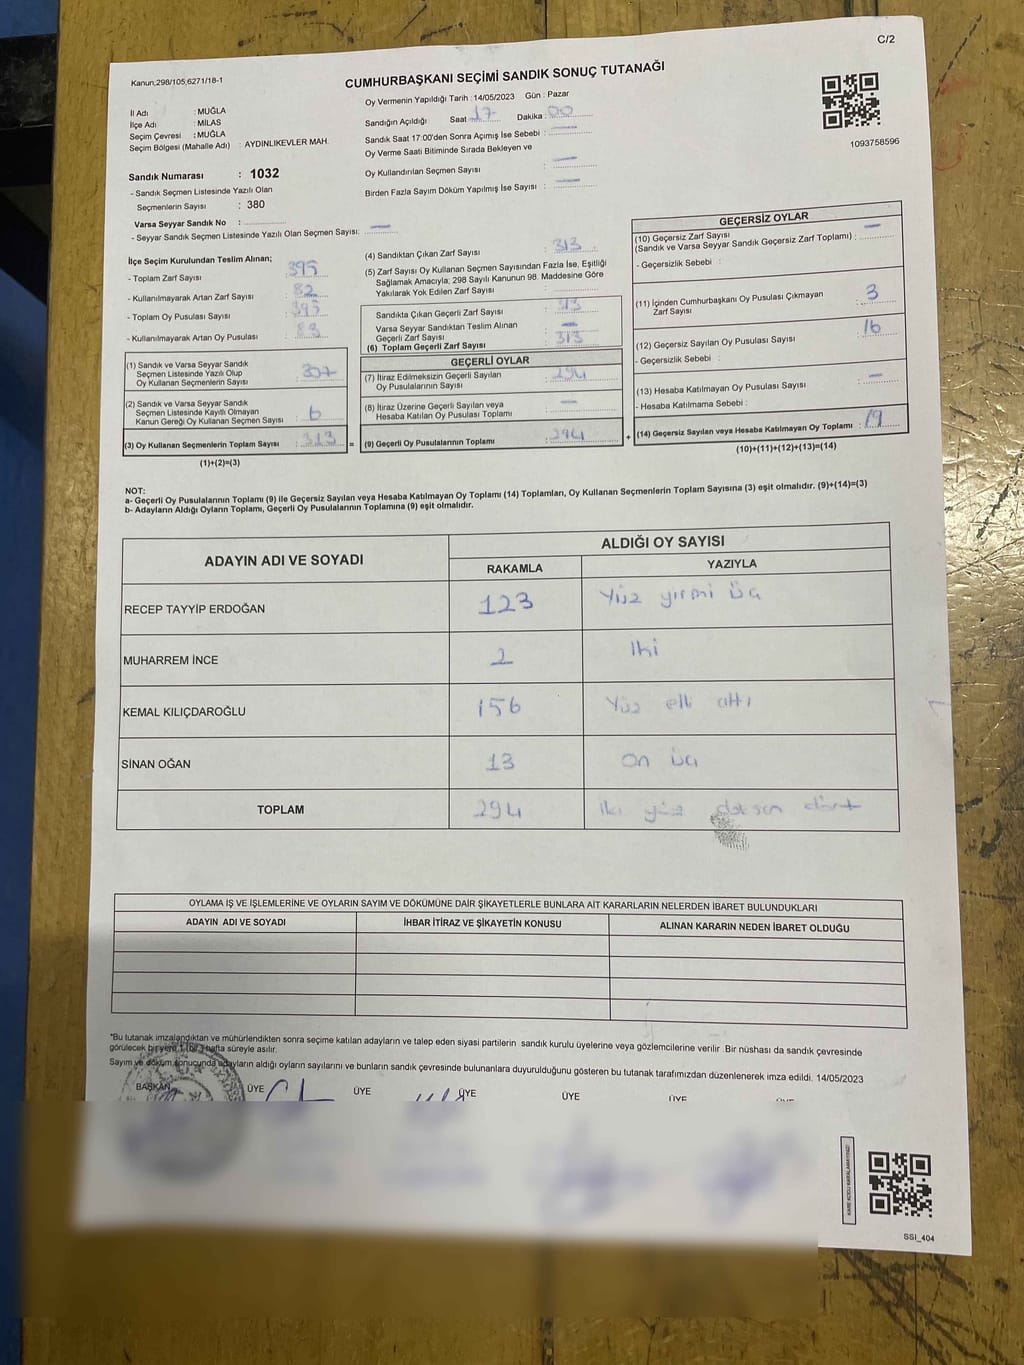 C/2
Kanun,298/105,6271/18-1
CUMHURBAŞKANI SEÇİMİ SANDIK SONUÇ TUTANAĞI
İl Adı : MUĞLA
İlçe Adı : MİLAS
Seçim Çevresi : MUĞLA
Seçim Bölgesi (Mahalle Adı) : AYDINLIKEVLER MAH.
Sandık Numarası : 1032
- Sandık Seçmen Listesinde Yazılı Olan
Seçmenlerin Sayısı : 380
Varsa Seyyar Sandık No :
- Seyyar Sandık Seçmen Listesinde Yazılı Olan Seçmen Sayısı: —
Oy Vermenin Yapıldığı Tarih : 14/05/2023 Gün : Pazar
Sandığın Açıldığı Saat 17 Dakika : 00
Sandık Saat 17:00'den Sonra Açımış İse Sebebi : —
Oy Verme Saati Bitiminde Sırada Bekleyen ve
Oy Kullandırılan Seçmen Sayısı : —
Birden Fazla Sayım Döküm Yapılmış İse Sayısı : —
1093758596
İlçe Seçim Kurulundan Teslim Alınan;
- Toplam Zarf Sayısı : 395
- Kullanılmayarak Artan Zarf Sayısı : 82
- Toplam Oy Pusulası Sayısı : 395
- Kullanılmayarak Artan Oy Pusulası : 83
(1) Sandık ve Varsa Seyyar Sandık
Seçmen Listesinde Yazılı Olup
Oy Kullanan Seçmenlerin Sayısı : 307
(2) Sandık ve Varsa Seyyar Sandık
Seçmen Listesinde Kayıtlı Olmayan
Kanun Gereği Oy Kullanan Seçmen Sayısı : 6
(3) Oy Kullanan Seçmenlerin Toplam Sayısı : 313 =
(1)+(2)=(3)
(4) Sandıktan Çıkan Zarf Sayısı : 313
(5) Zarf Sayısı Oy Kullanan Seçmen Sayısından Fazla İse, Eşitliği
Sağlamak Amacıyla; 298 Sayılı Kanunun 98. Maddesine Göre
Yakılarak Yok Edilen Zarf Sayısı :
Sandıkta Çıkan Geçerli Zarf Sayısı : 313
Varsa Seyyar Sandıktan Teslim Alınan
Geçerli Zarf Sayısı : —
(6) Toplam Geçerli Zarf Sayısı : 313
GEÇERLİ OYLAR
(7) İtiraz Edilmeksizin Geçerli Sayılan
Oy Pusulalarının Sayısı : 294
(8) İtiraz Üzerine Geçerli Sayılan veya
Hesaba Katılan Oy Pusulası Toplamı : —
(9) Geçerli Oy Pusulalarının Toplamı : 294 +
GEÇERSİZ OYLAR
(10) Geçersiz Zarf Sayısı
(Sandık ve Varsa Seyyar Sandık Geçersiz Zarf Toplamı) : —
- Geçersizlik Sebebi :
(11) İçinden Cumhurbaşkanı Oy Pusulası Çıkmayan
Zarf Sayısı : 3
(12) Geçersiz Sayılan Oy Pusulası Sayısı : 16
- Geçersizlik Sebebi :
(13) Hesaba Katılmayan Oy Pusulası Sayısı : —
- Hesaba Katılmama Sebebi :
(14) Geçersiz Sayılan veya Hesaba Katılmayan Oy Toplamı : 19
(10)+(11)+(12)+(13)=(14)
NOT:
a- Geçerli Oy Pusulalarının Toplamı (9) ile Geçersiz Sayılan veya Hesaba Katılmayan Oy Toplamı (14) Toplamları, Oy Kullanan Seçmenlerin Toplam Sayısına (3) eşit olmalıdır. (9)+(14)=(3)
b- Adayların Aldığı Oyların Toplamı, Geçerli Oy Pusulalarının Toplamına (9) eşit olmalıdır.
ADAYIN ADI VE SOYADI ALDIĞI OY SAYISI
RAKAMLA YAZIYLA
RECEP TAYYİP ERDOĞAN 123 Yüz yirmi üç
MUHARREM İNCE 2 İki
KEMAL KILIÇDAROĞLU 156 Yüz elli altı
SİNAN OĞAN 13 On üç
TOPLAM 294 İki yüz doksan dört
OYLAMA İŞ VE İŞLEMLERİNE VE OYLARIN SAYIM VE DÖKÜMÜNE DAİR ŞİKAYETLERLE BUNLARA AİT KARARLARIN NELERDEN İBARET BULUNDUKLARI
ADAYIN ADI VE SOYADI İHBAR İTİRAZ VE ŞİKAYETİN KONUSU ALINAN KARARIN NEDEN İBARET OLDUĞU
*Bu tutanak imzalandıktan ve mühürlendikten sonra seçime katılan adayların ve talep eden siyasi partilerin sandık kurulu üyelerine veya gözlemcilerine verilir .Bir nüshası da sandık çevresinde
görülecek bir yere 1 (bir) hafta süreyle asılır.
Sayım ve döküm sonucunda adayların aldığı oyların sayılarını ve bunların sandık çevresinde bulunanlara duyurulduğunu gösteren bu tutanak tarafımızdan düzenlenerek imza edildi. 14/05/2023
BAŞKAN ÜYE ÜYE ÜYE ÜYE ÜYE
SSI_404